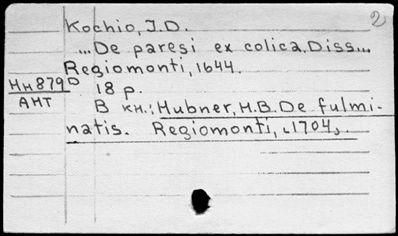 2
Kochio, J.D.
...De paresi ex colica. Diss...
Regiomonti, 1644.
Нн879D 18 p.
АНТ В кн.: Hubner, H.B. De fulmi-
natis. Regiomonti, ‹1704›.